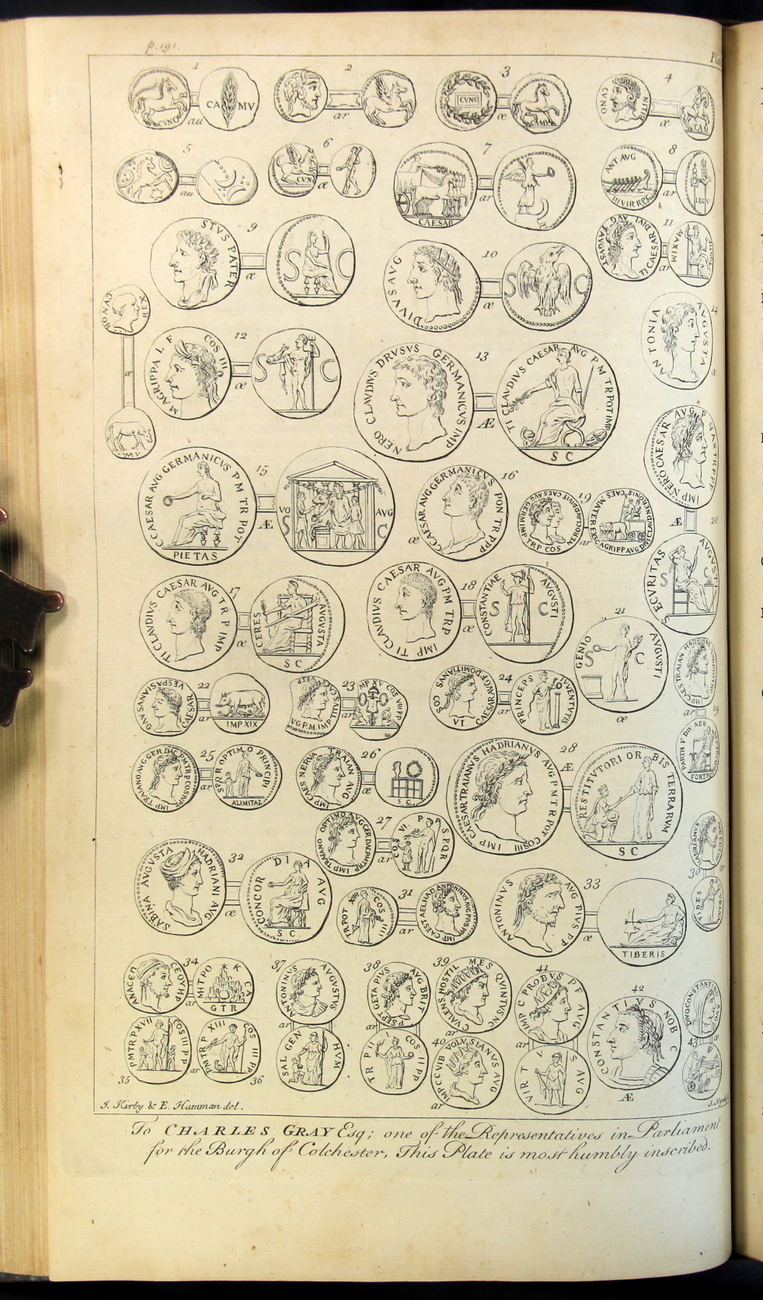 p. 191.
1
CVNO
au
CA MV
2
ar
3
CVNO
æ
CAM
4
CVNO
5
au
6
CVN
æ
7
CAESAR
ar
8
ANT AVG
III VIR RPC
ar
LEG
9
STVS PATER
æ
S C
10
DIVVS AVG
æ
S C
11
TI CAESAR DIVI AVG F AVGVST
ar
MAXIM
REX
æ
12
M AGRIPPA L F COS III
æ
S C
13
NERO CLAVDIVS DRVSVS GERMANICVS IMP
Æ
TI CLAVDIVS CAESAR AVG P M TR POT IMP
SC
14
ANTONIA AVGVSTA
15
C CAESAR AVG GERMANICVS P M TR POT
PIETAS
Æ
VO AVG
S C
16
C CAESAR AVG GERMANICVS PON TR PPP
æ
17
TI CLAVDIVS CAESAR AVG TR P IMP
æ
CERES AVGVSTA
SC
18
IMP TI CLAVDIVS CAESAR AVG PM TR P
æ
CONSTANTIAE AVGVSTI
S C
19
ar
IMP NERO CAESAR AVG
Æ
20
SECVRITAS AVGVSTI
S C
21
GENIO AVGVSTI
S C
æ
22
CAESAR VESPASIANVS
ar
IMP XIX
23
ar
24
ar
PRINCEPS IVVENTVTIS
25
ar
SPQR OPTIMO PRINCIPI
ALIM ITAL
26
IMP CAES NERVA TRAIAN AVG
æ
S C
27
ar
COS VI P P SPQR
28
IMP CAESAR TRAIANVS HADRIANVS AVG P M T R POT COS III
Æ
RESTITVTORI ORBIS TERRARVM
SC
29
30
31
TR POT XIIII COS IIII
ar
32
SABINA AVGVSTA HADRIANI AVG
æ
CONCORDIA AVG
SC
33
ANTONINVS AVG PIVS PP
æ
TIBERIS
34
ar
35
PMTRP XVII COS III PP
ar
PMTRP XIII COS III PP
36
37
ANTONINVS AVGVSTVS
ar
SAL GEN HVM
38
P SEPT GETA PIVS AVG BRIT
ar
TR P II COS II PP
39
C VALENS HOSTIL MES QVINTVS NC
40
IMP CC VIB VOLVSIANVS AVG
ar
41
IMP C PROBVS P F AVG
ar
VIRTVS AVG
42
CONSTANTIVS NOB C
Æ
43
J. Kirby & E. Hamman del.
To CHARLES GRAY Esq; one of the Representatives in Parliament
for the Burgh of Colchester, This Plate is most humbly inscribed.